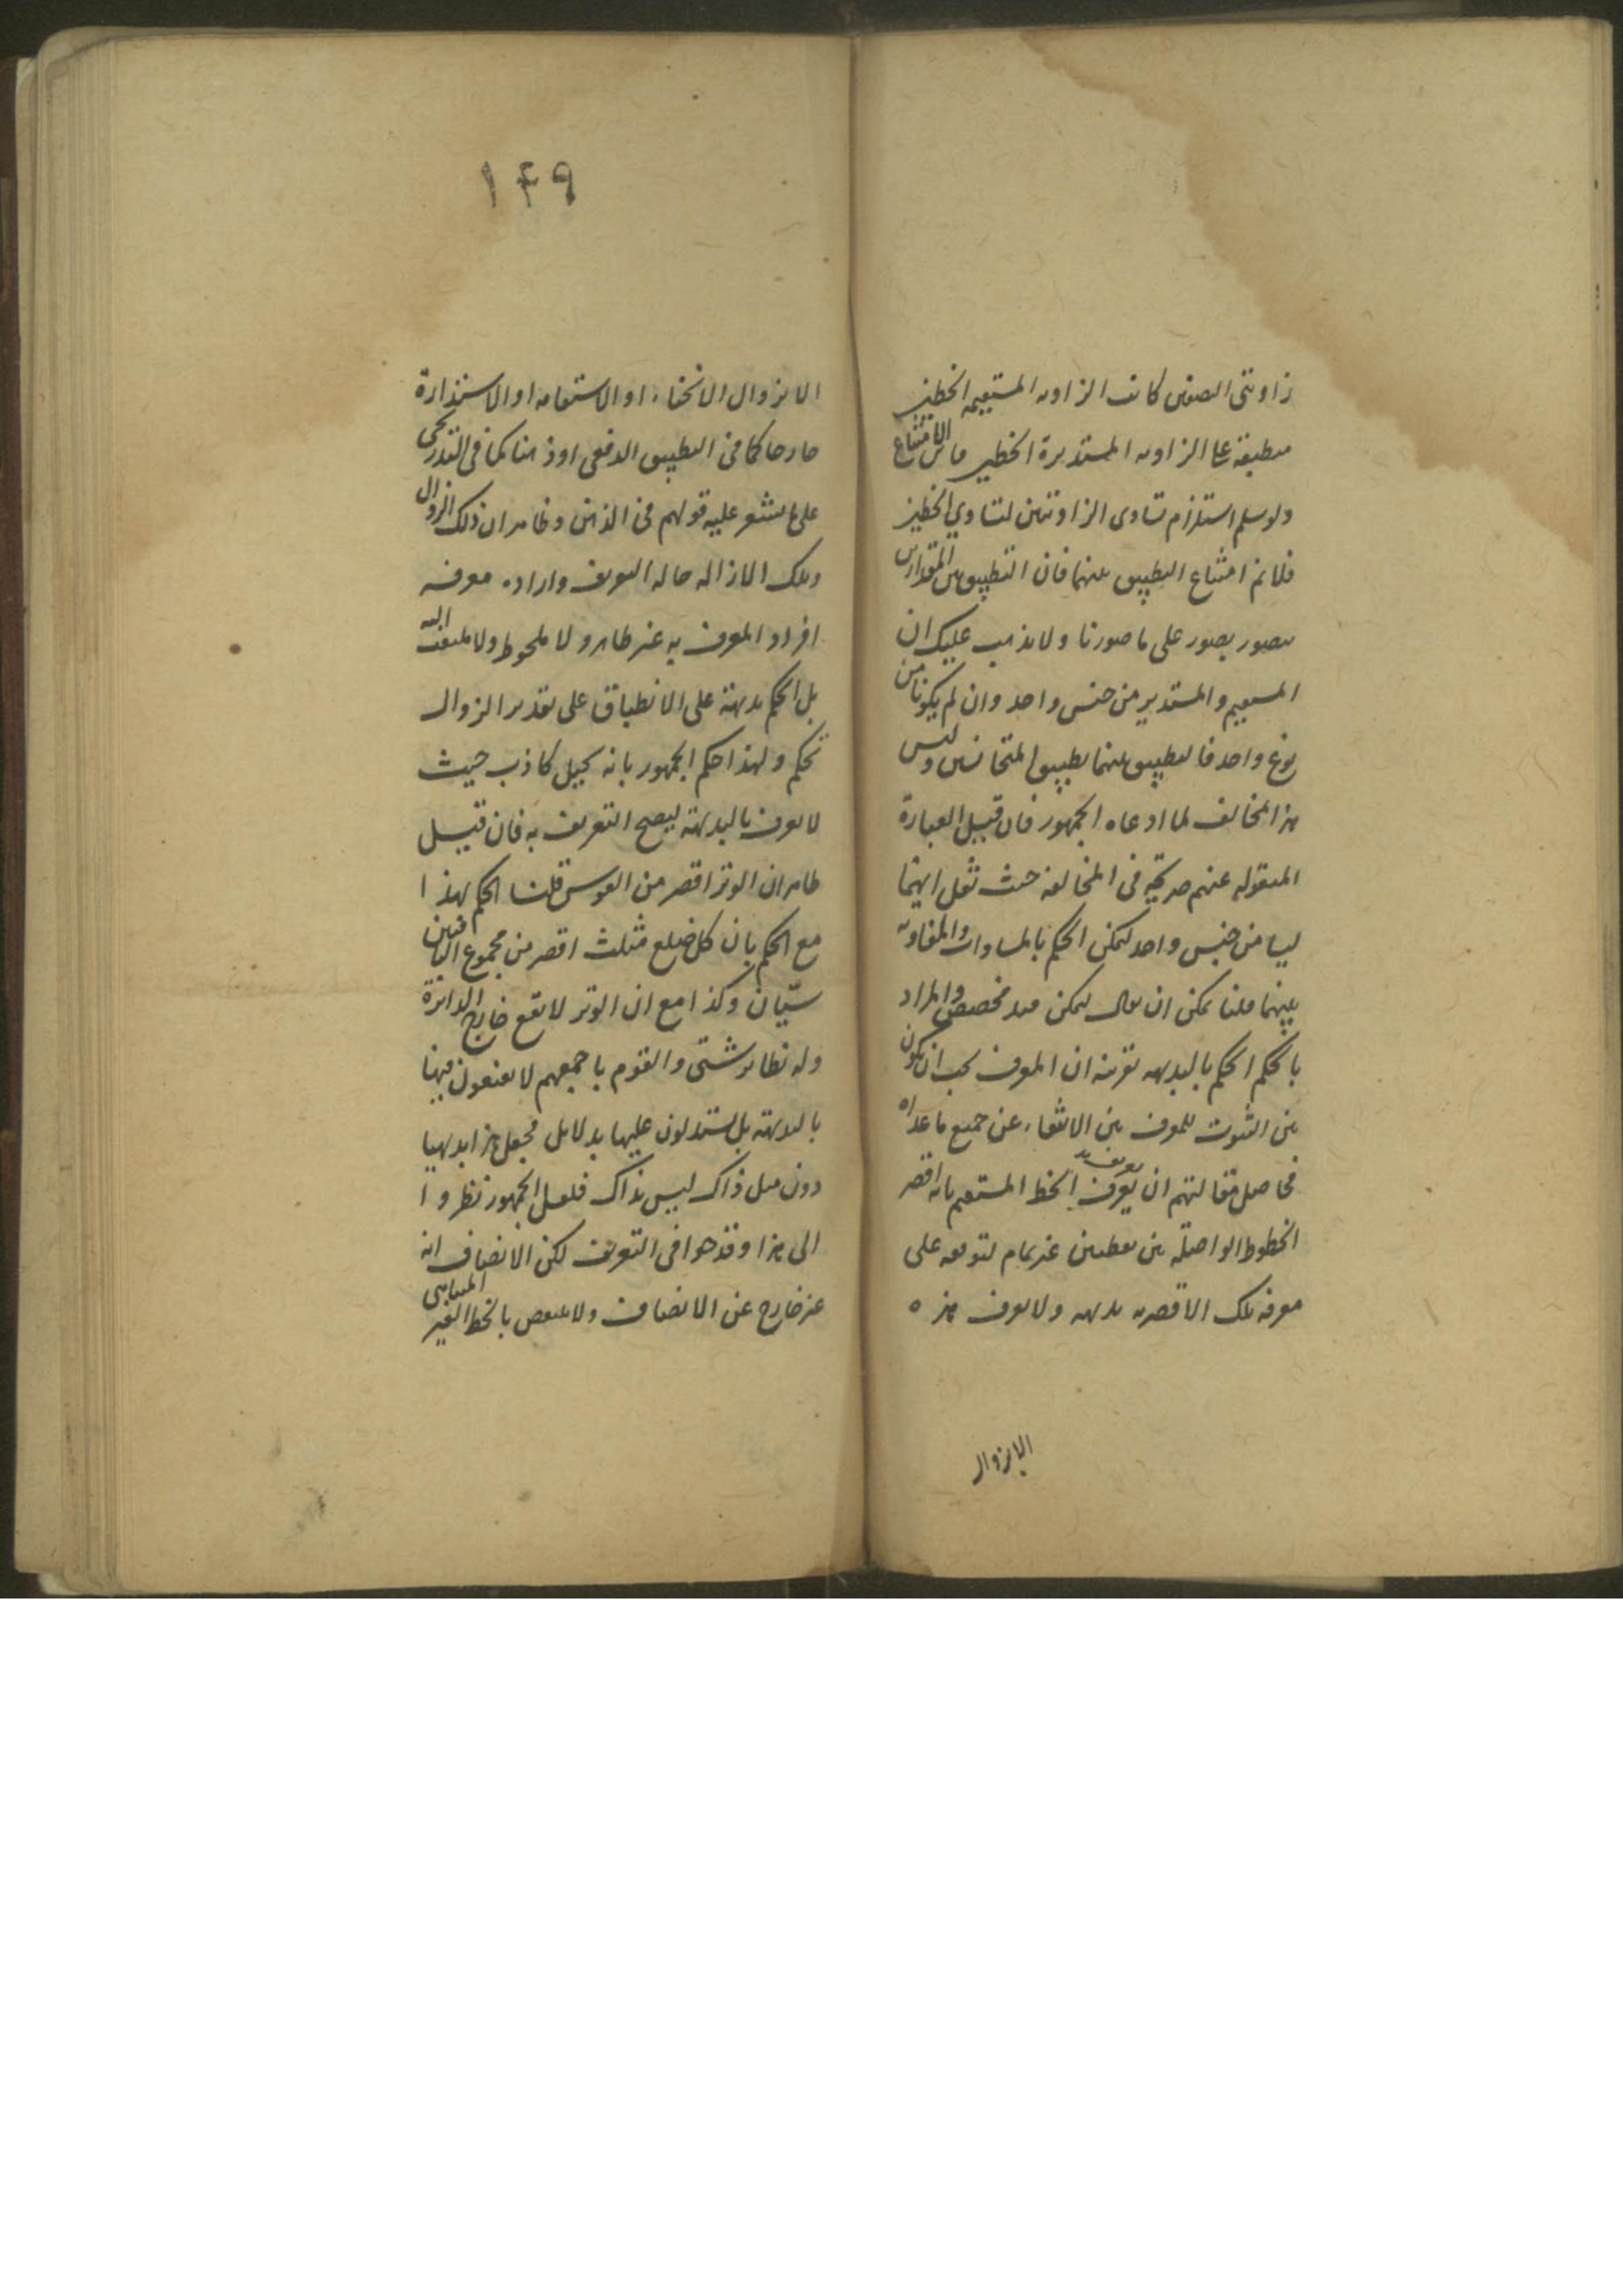 زاويتي الصغرى كانت الزاويه المستقيمه الخطين
منطبقة على الزاويه المستديرة الخطين الامتناع
ولو سلم استلزام تساوى الزاويتين لتساوي الخطين
فلا نم امتناع التطبيق بينهما فان التطبيق بين المقدارين
يتصور بصور على ما صورنا ولا يذهب عليك ان
المستقيم والمستدير من جنس واحد وان لم يكونا من
نوع واحد فالتطبيق بينهما تطبيق المتجانسين وليس
هذا مخالف لما ادعاه الجمهور فان قيل العبارة
المنقوله عنهم صريحة فى المخالفه حيث نقل انهما
ليسا من جنس واحد ليمكن الحكم بالمساوات والمفاوته
بينهما قلنا يمكن ان يقال ليمكن قيد مخصص والمراد
بالحكم الحكم بالبديهه بقرينه ان المعرف يجب ان يكون
بين الثبوت للمعرف بين الانتفاء عن جميع ما عداه
فحاصل مقالتهم ان تعريف الخط المستقيم بانه اقصر
الخطوط الواصلة بين نقطتين غير تمام لتوقفه على
معرفه تلك الاقصريه بديهه ولا يعرف هذه
الا بزوال
١٤٩
الا بزوال الانحناء او الاستقامه او الاستدارة
خارجا كما فى التطبيق الدفعى او ذهنا كما فى التدريجى
على ما يشعر عليه قولهم فى الذهن وظاهر ان ذلك الزوال
وتلك الازاله حاله التعريف واراده معرفه
افراد المعرف به غير ظاهر ولا ملحوظ ولا ملتفت اليه
بل الحكم بديهة على الانطباق على تقدير الزوال
تحكم ولهذا حكم الجمهور بانه تخيل كاذب حيث
لا يعرف بالبديهة ليصح التعريف به فان قيل
ظاهر ان الوتر اقصر من القوس قلنا الحكم بهذا
مع الحكم بان كل ضلع مثلث اقصر من مجموع الباقيين
سيّان وكذا مع ان الوتر لا يقع خارج الدائرة
وله نظاير شتى والقوم باجمعهم لا يقنعون فيها
بالبديهة بل يستدلون عليها بدلايل فجعل هذا بديهيا
دون مثل ذاك ليس بذاك فلعل الجمهور نظروا
الى هذا وقدحوا فى التعريف لكن الانصاف انه
غير خارج عن الانصاف ولا ينتقض بالخط الغير المتناهى